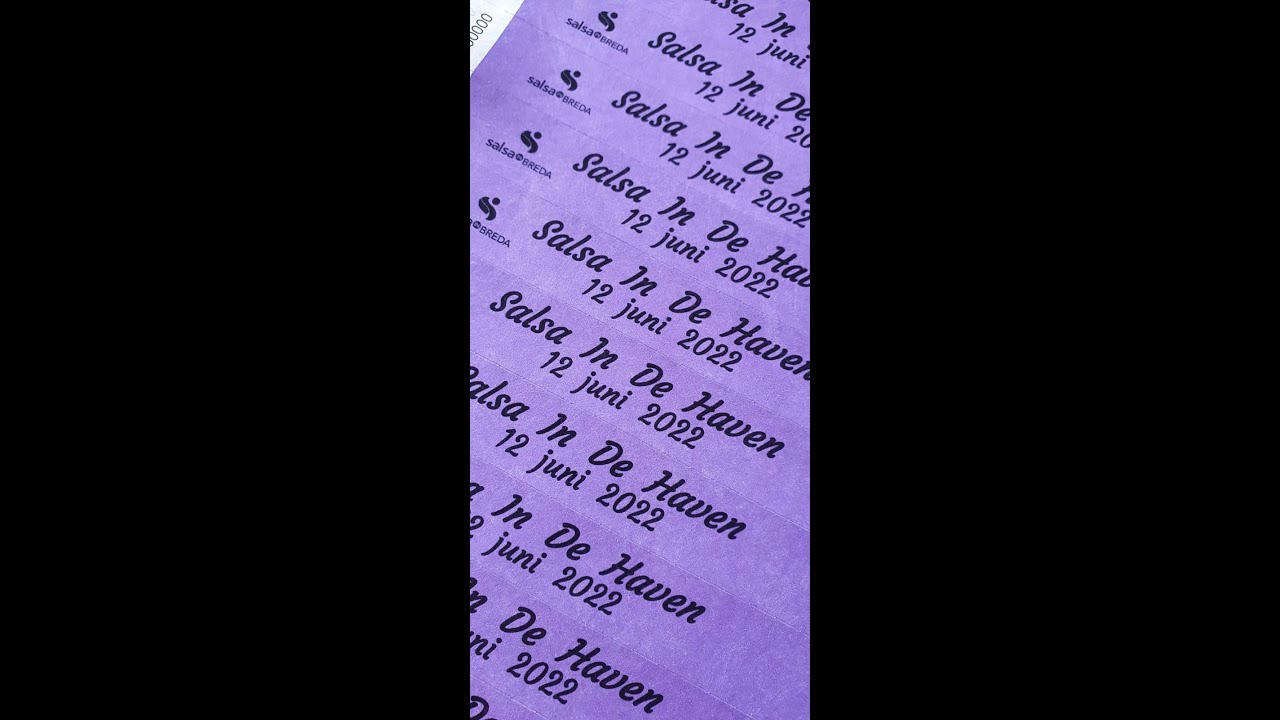 0000
Salsa In
12 juni
salsa IN BREDA
Salsa In De
12 juni 20
salsa IN BREDA
Salsa In De H
12 juni 2022
salsa IN BREDA
Salsa In De Hav
12 juni 2022
BREDA
Salsa In De Haven
12 juni 2022
Salsa In De Haven
12 juni 2022
Salsa In De Haven
12 juni 2022
a In De Haven
12 juni 2022
In De Haven
uni 2022
De